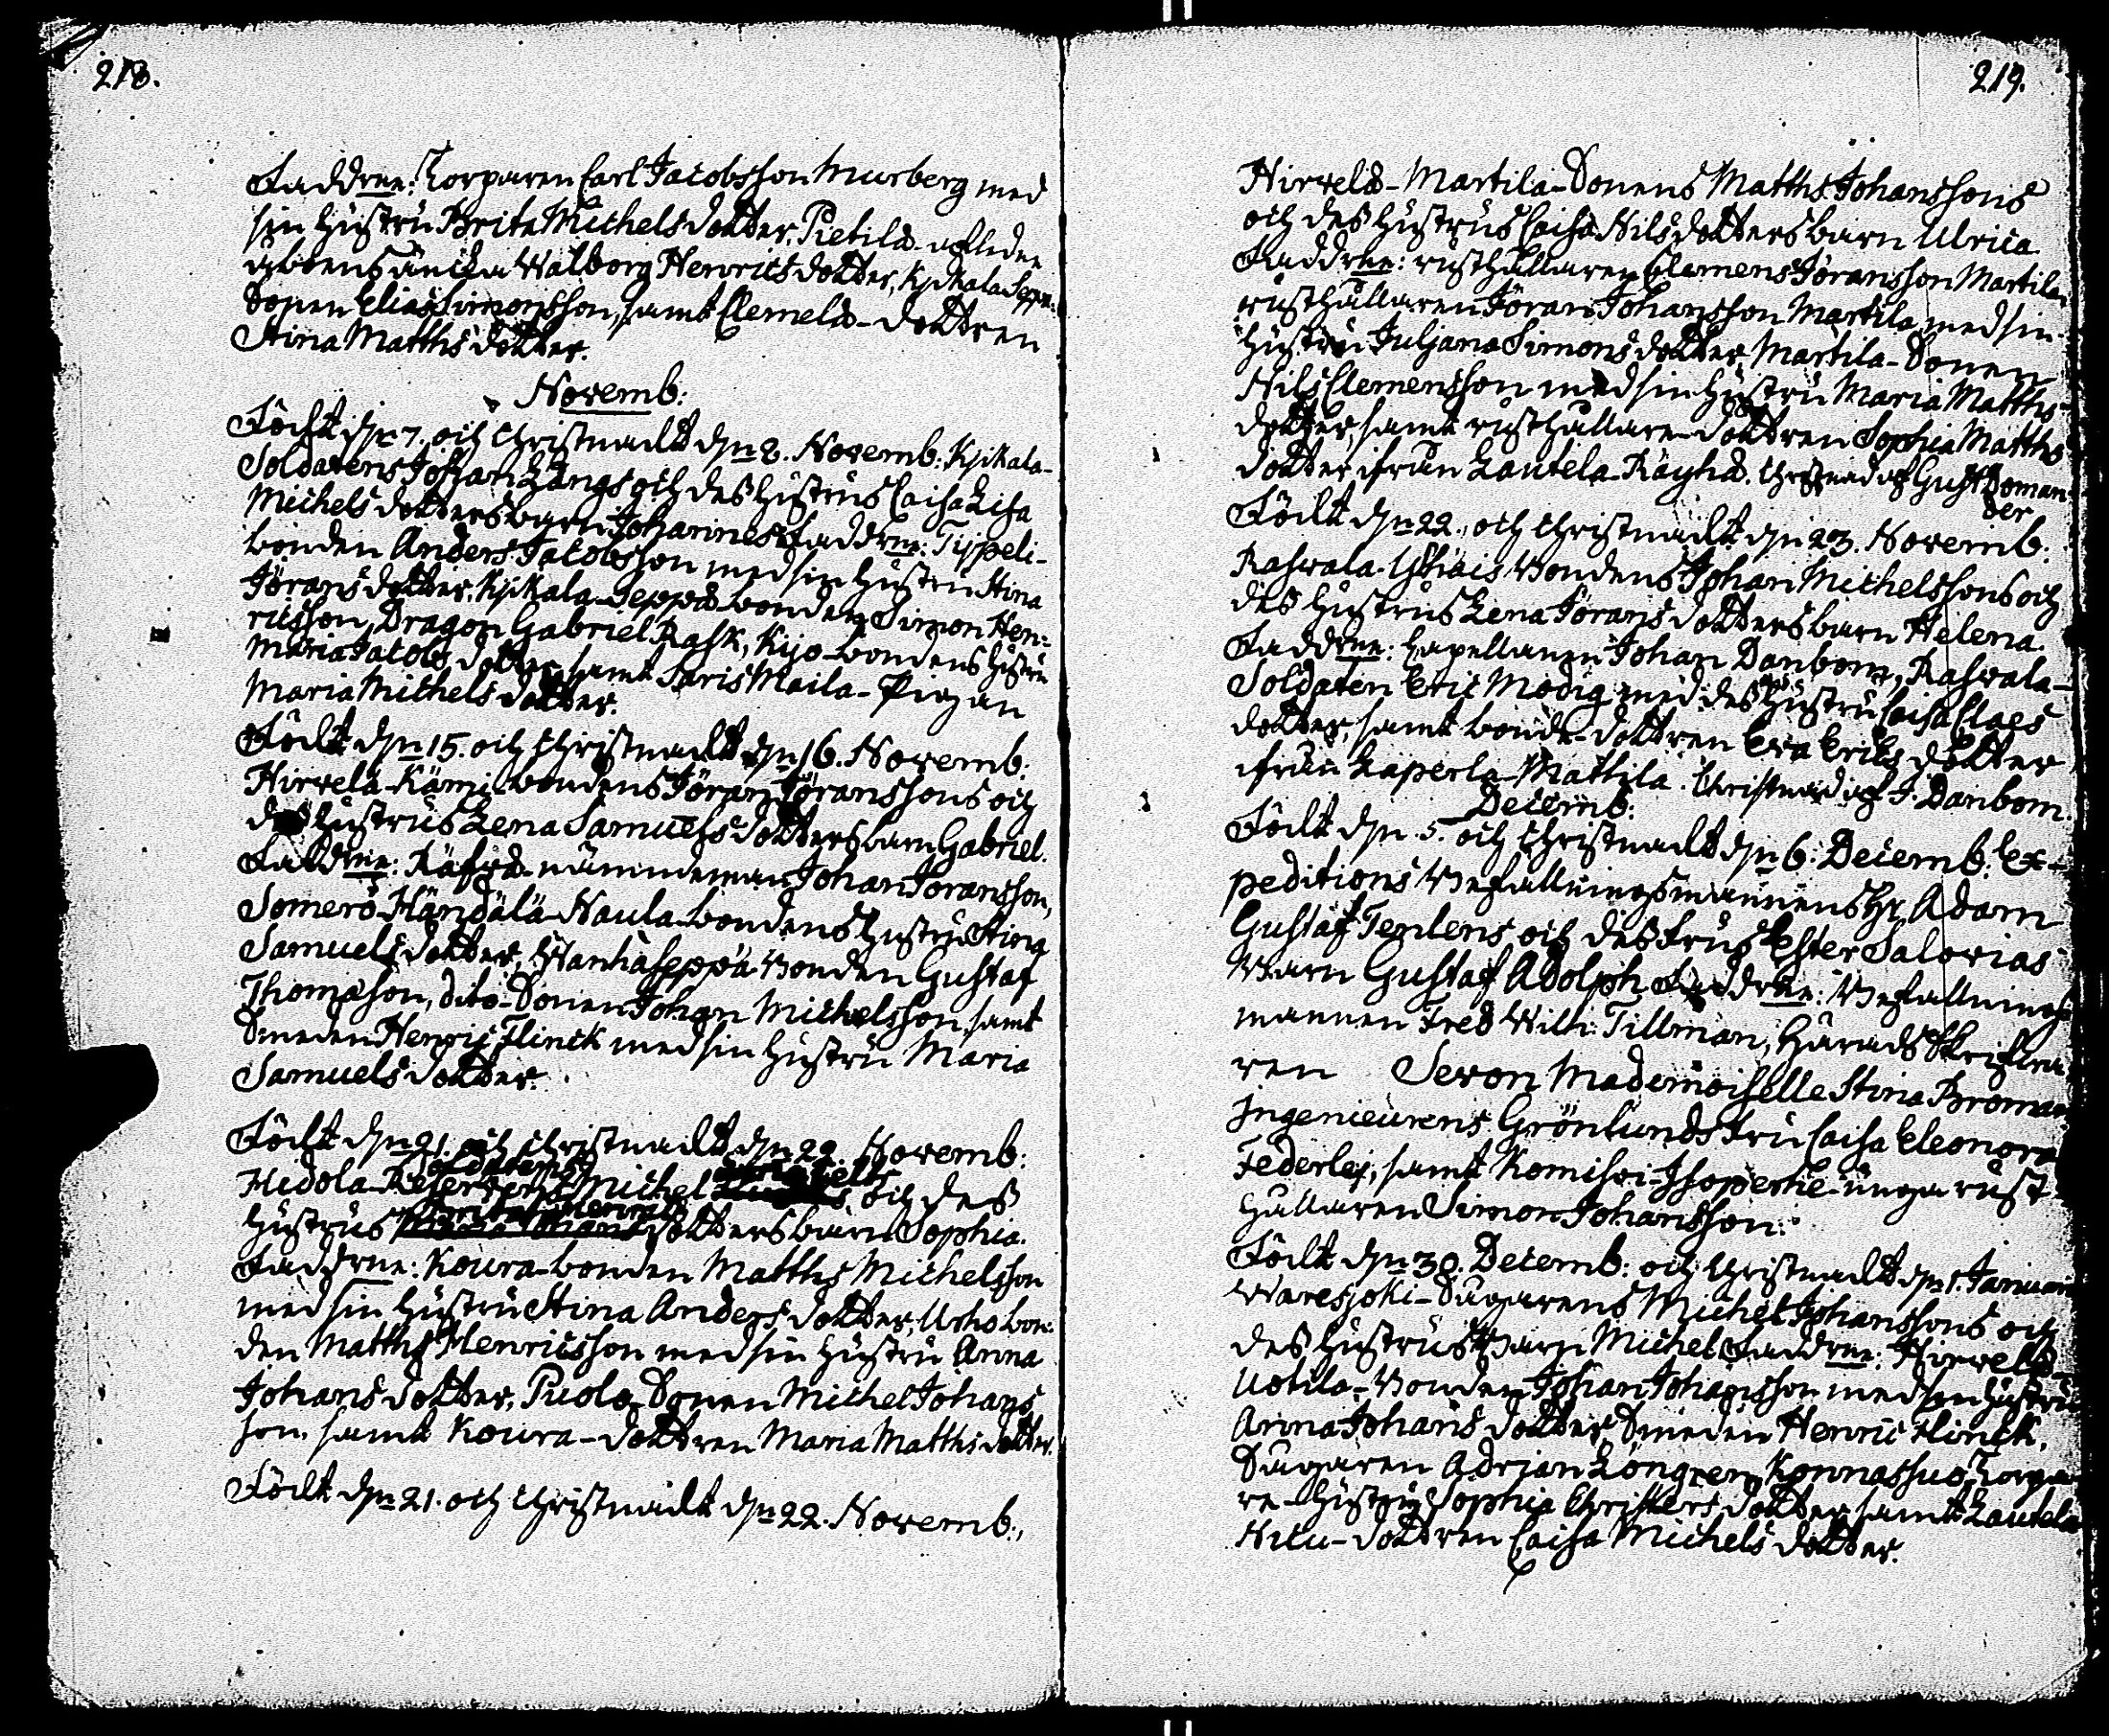 218.
Faddrne: Torparen Carl Jacobsson Murberg med
sin hustru Brita Michelsdotter, Pietilä-aflidne
åboens änka Walborg Henricsdotter, Kjikala Seppä-
Sonen Elias Simonsson, samt Clemelä-dottren
Stina Matthsdotter.
Novemb:
Född d̅n 7. och Christnadt d̅n 8. Novemb: Kjikala-
Soldatens Johan Långs och des hustrus Caisa Lisa
Michelsdotters barn Johannes. Faddrne: Typpeli-
bonden Anders Jacobsson med sin hustru Stina
Jöransdotter, Kjikala-Seppä-bonden Simon Hen-
ricsson, Dragon Gabriel Rask, Kijo-bondens hustru
Maria Jacobsdotter samt Saris Maila-Pigan
Maria Michelsdotter.
Född d̅n 15. och Christnadt d̅n 16. Novemb:
Hirvelä-Kämi-bondens Jöran Jöranssons och
des hustrus Lena Samuelsdotters barn Gabriel.
Faddrne: Räfvä-nämndeman Johan Jöransson,
Somero-Händälä-Naula-bondens hustru Stina
Samuelsdotter, Wanhaseppä-bonden Gustaf
Thomasson, dito-Sonen Johan Michelsson, samt
Smeden Henric Flinck med sin hustru Maria
Samuelsdotter.
Född d̅n 21. och Christnadt d̅n 22. Novemb:
Soldatens
Hidola-Reservens Michel och des
Brita Henrics
hustrus dotters barn Sophia.
Faddrne: Koura-bonden Matths Michelsson
med sin hustru Stina Andersdotter, Urhobon-
den Matths Henricsson med sin hustru Anna
Johansdotter, Puolo-Sonen Michel Johans
son, samt Koura-dottren Maria Matthsdotter.
Född d̅n 21. och Christnadt d̅n 22. Novemb:,
219.
Hirvelä-Martila-Sonens Matths Johanssons
och des hustrus Caisa Nilsdotters barn Ulrica.
Faddrne: rusthållaren Clemens Jöransson Martila,
rusthållaren Jöran Johansson Martila med sin
hustru Juljana Simonsdotter, Martila-Sonen
Nils Clemensson med sin hustru Maria Matths-
dotter, samt rusthållare-dottren Sophia Matths
dotter ifrån Lautela-Räyhä. Christnad af Gust Doman
der
Född d̅n 22. och Christnadt d̅n 23. Novemb:
Rasvala- bondens Johan Michelssons och
des hustrus Lena Jöransdotters barn Helena.
Faddrne: Capellanen Johan Danbom, Rasvala-
Soldaten Eric Modig med des hustru Caisa Claes
dotter, samt bonde-dottren Eva Ericsdotter
ifrån Laperla-Mattila. Christnad af J. Danbom.
Decemb:
Född d̅n 5. och Christnadt d̅n 6. Decemb: Ex-
peditions Befallningsmannens Hr Adam
Gustaf Tenlens och des frus Ester Salovias
barn Gustaf Adolph. Faddrne: Befallnings
mannen Fred Wilh: Tillman, Härads Skrifva
ren Sevon Mademoiselle Stina Broman
Ingenieurens Grönlunds fru Caisa Eleonora
Federley, samt Komisvi-Isoperhe-unga rust-
hållaren Simon Johansson.
Född d̅n 30. Decemb: och Christnadt d̅n 1. Januari
Waresjoki-Sågarens Michel Johanssons och
des hustrus barn Michel. Faddrne: Hirvelä-
Uotila-bonden Johan Johansson med sin hustru
Anna Johansdotter, Smeden Henric Flinck,
Sågaren Adrian Löngren, Konnassuo Torpa
re-hustru Sophia Christersdotter, samt Lautela
Hilu-dottren Caisa Michelsdotter.